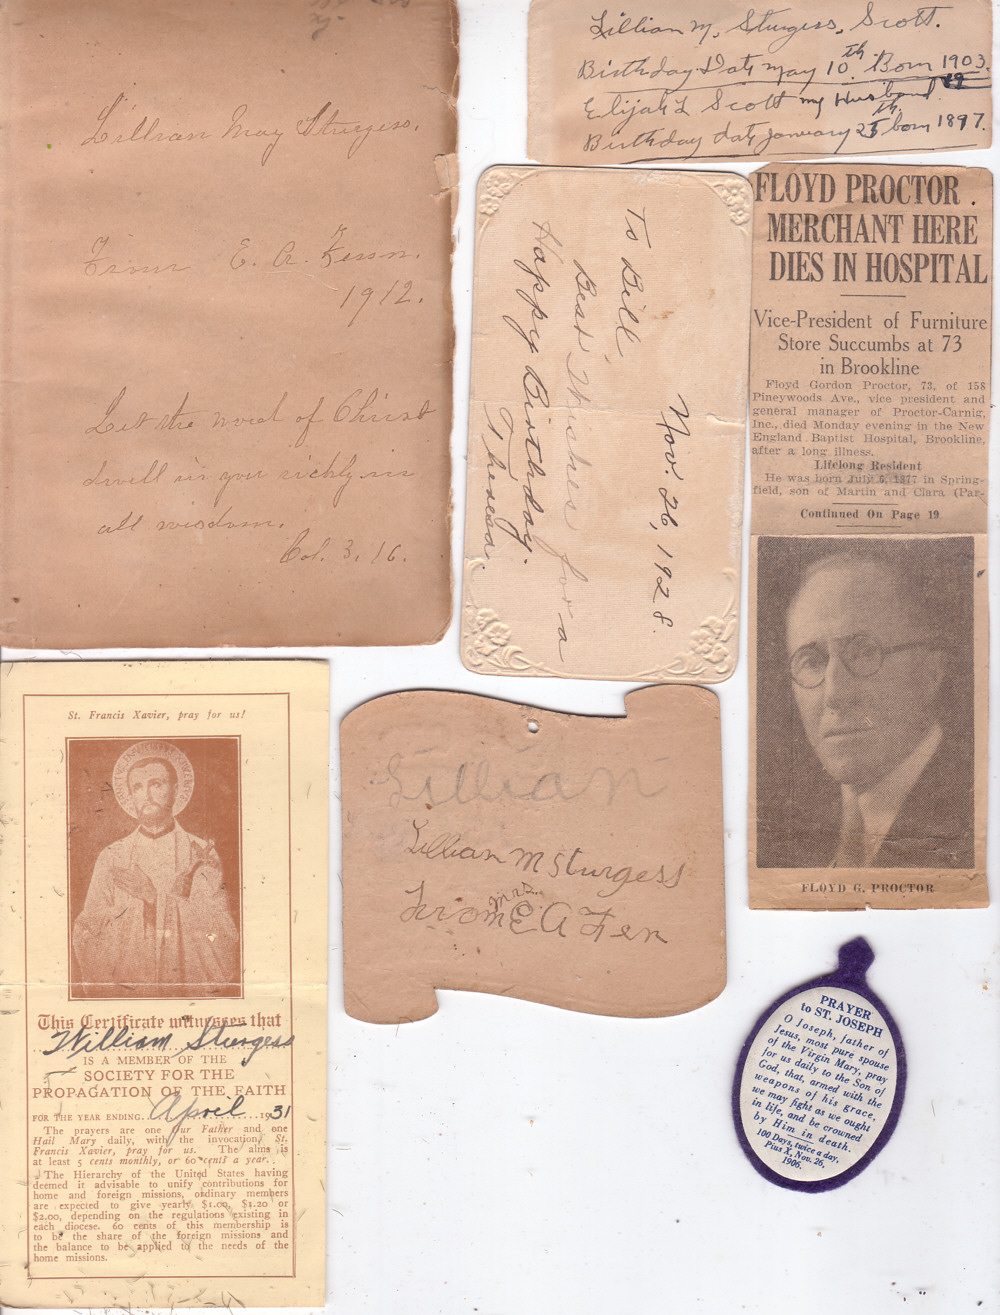 Lillian May Sturgess.
From E. A. Fenn.
1912.
Let the word of Christ
dwell in you richly in
all wisdom.
Col. 3, 16.
Lillian M. Sturgess, Scott.
Birthday Date May 10th. Born 1903.
Elijah L Scott my Husband.
Birthday date January 25th born 1897.
To Bill
Best Wishes for a
Happy Birthday.
Theresa.
Nov. 26, 1928.
FLOYD PROCTOR.
MERCHANT HERE
DIES IN HOSPITAL
Vice-President of Furniture
Store Succumbs at 73
in Brookline
Floyd Gordon Proctor, 73, of 158
Pineywoods Ave., vice president and
general manager of Proctor-Carnig,
Inc., died Monday evening in the New
England Baptist Hospital, Brookline,
after a long illness.
Lifelong Resident
He was born July 6, 1877 in Spring-
field, son of Martin and Clara (Par-
Continued On Page 19
FLOYD G. PROCTOR
St. Francis Xavier, pray for us!
This Certificate witnesses that
William Sturgess
IS A MEMBER OF THE
SOCIETY FOR THE
PROPAGATION OF THE FAITH
FOR THE YEAR ENDING. April 1931
The prayers are one Our Father and one
Hail Mary daily, with the invocation, St.
Francis Xavier, pray for us. The alms is
at least 5 cents monthly, or 60 cents a year.
The Hierarchy of the United States having
deemed it advisable to unify contributions for
home and foreign missions, ordinary members
are expected to give yearly $1.00, $1.20 or
$2.00, depending on the regulations existing in
each diocese. 60 cents of this membership is
to be the share of the foreign missions and
the balance to be applied to the needs of the
home missions.
Lillian
Lillian M Sturgess
From Mrs. E A Fen
PRAYER
to ST. JOSEPH
O Joseph, father of
Jesus, most pure spouse
of the Virgin Mary, pray
for us daily to the Son of
God, that, armed with the
weapons of his grace,
we may fight as we ought
in life, and be crowned
by Him in death.
100 Days, twice a day,
Pius X, Nov. 26,
1906.